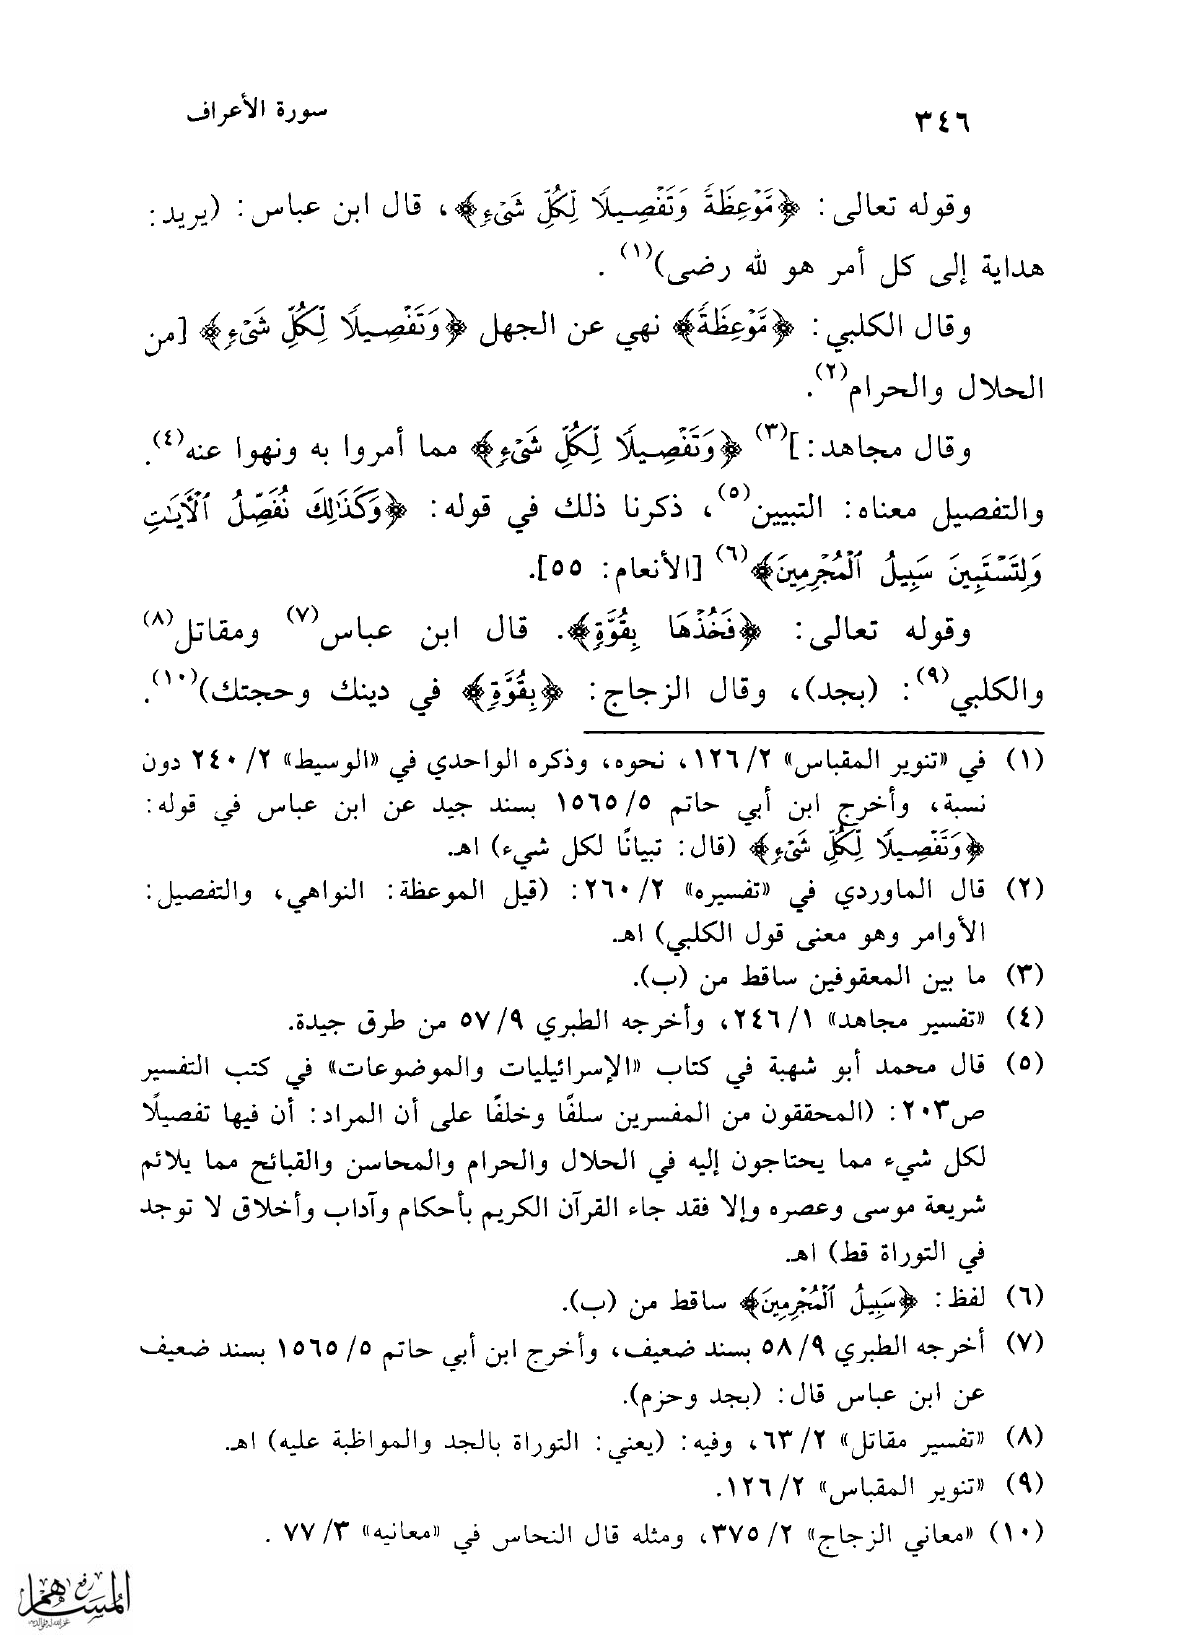 ٣٤٦
سورة الأعراف
وقوله تعالى: ﴿مَّوْعِظَةً وَتَفْصِيلًا لِّكُلِّ شَيْءٍ﴾، قال ابن عباس: (يريد:
هداية إلى كل أمر هو لله رضى)(١) .
وقال الكلبي: ﴿مَّوْعِظَةً﴾ نهي عن الجهل ﴿وَتَفْصِيلًا لِّكُلِّ شَيْءٍ﴾ [من
الحلال والحرام(٢).
وقال مجاهد:](٣) ﴿وَتَفْصِيلًا لِّكُلِّ شَيْءٍ﴾ مما أمروا به ونهوا عنه(٤).
والتفصيل معناه: التبيين(٥)، ذكرنا ذلك في قوله: ﴿وَكَذَٰلِكَ نُفَصِّلُ ٱلْآيَٰتِ
وَلِتَسْتَبِينَ سَبِيلُ ٱلْمُجْرِمِينَ﴾(٦) [الأنعام: ٥٥].
وقوله تعالى: ﴿فَخُذْهَا بِقُوَّةٍ﴾. قال ابن عباس(٧) ومقاتل(٨)
والكلبي(٩): (بجد)، وقال الزجاج: ﴿بِقُوَّةٍ﴾ في دينك وحجتك)(١٠).
(١) في «تنوير المقباس» ٢/ ١٢٦، نحوه، وذكره الواحدي في «الوسيط» ٢/ ٢٤٠ دون
نسبة، وأخرج ابن أبي حاتم ٥/ ١٥٦٥ بسند جيد عن ابن عباس في قوله:
﴿وَتَفْصِيلًا لِّكُلِّ شَيْءٍ﴾ (قال: تبيانًا لكل شيء) اهـ.
(٢) قال الماوردي في «تفسيره» ٢/ ٢٦٠: (قيل الموعظة: النواهي، والتفصيل:
الأوامر وهو معنى قول الكلبي) اهـ.
(٣) ما بين المعقوفين ساقط من (ب).
(٤) «تفسير مجاهد» ١/ ٢٤٦، وأخرجه الطبري ٩/ ٥٧ من طرق جيدة.
(٥) قال محمد أبو شهبة في كتاب «الإسرائيليات والموضوعات» في كتب التفسير
ص٢٠٣: (المحققون من المفسرين سلفًا وخلفًا على أن المراد: أن فيها تفصيلًا
لكل شيء مما يحتاجون إليه في الحلال والحرام والمحاسن والقبائح مما يلائم
شريعة موسى وعصره وإلا فقد جاء القرآن الكريم بأحكام وآداب وأخلاق لا توجد
في التوراة قط) اهـ.
(٦) لفظ: ﴿سَبِيلُ ٱلْمُجْرِمِينَ﴾ ساقط من (ب).
(٧) أخرجه الطبري ٩/ ٥٨ بسند ضعيف، وأخرج ابن أبي حاتم ٥/ ١٥٦٥ بسند ضعيف
عن ابن عباس قال: (بجد وحزم).
(٨) «تفسير مقاتل» ٢/ ٦٣، وفيه: (يعني: التوراة بالجد والمواظبة عليه) اهـ.
(٩) «تنوير المقباس» ٢/ ١٢٦.
(١٠) «معاني الزجاج» ٢/ ٣٧٥، ومثله قال النحاس في «معانيه» ٣/ ٧٧ .
رفع
المساهم